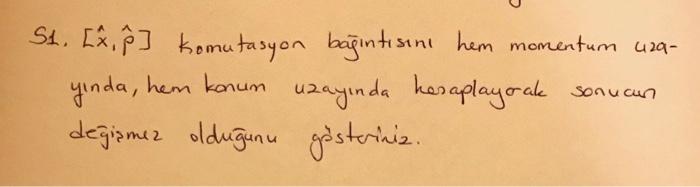 S1. [x̂, p̂] komutasyon bağıntısını hem momentum uza-
yında, hem konum uzayında hesaplayarak sonucun
değişmez olduğunu gösteriniz.